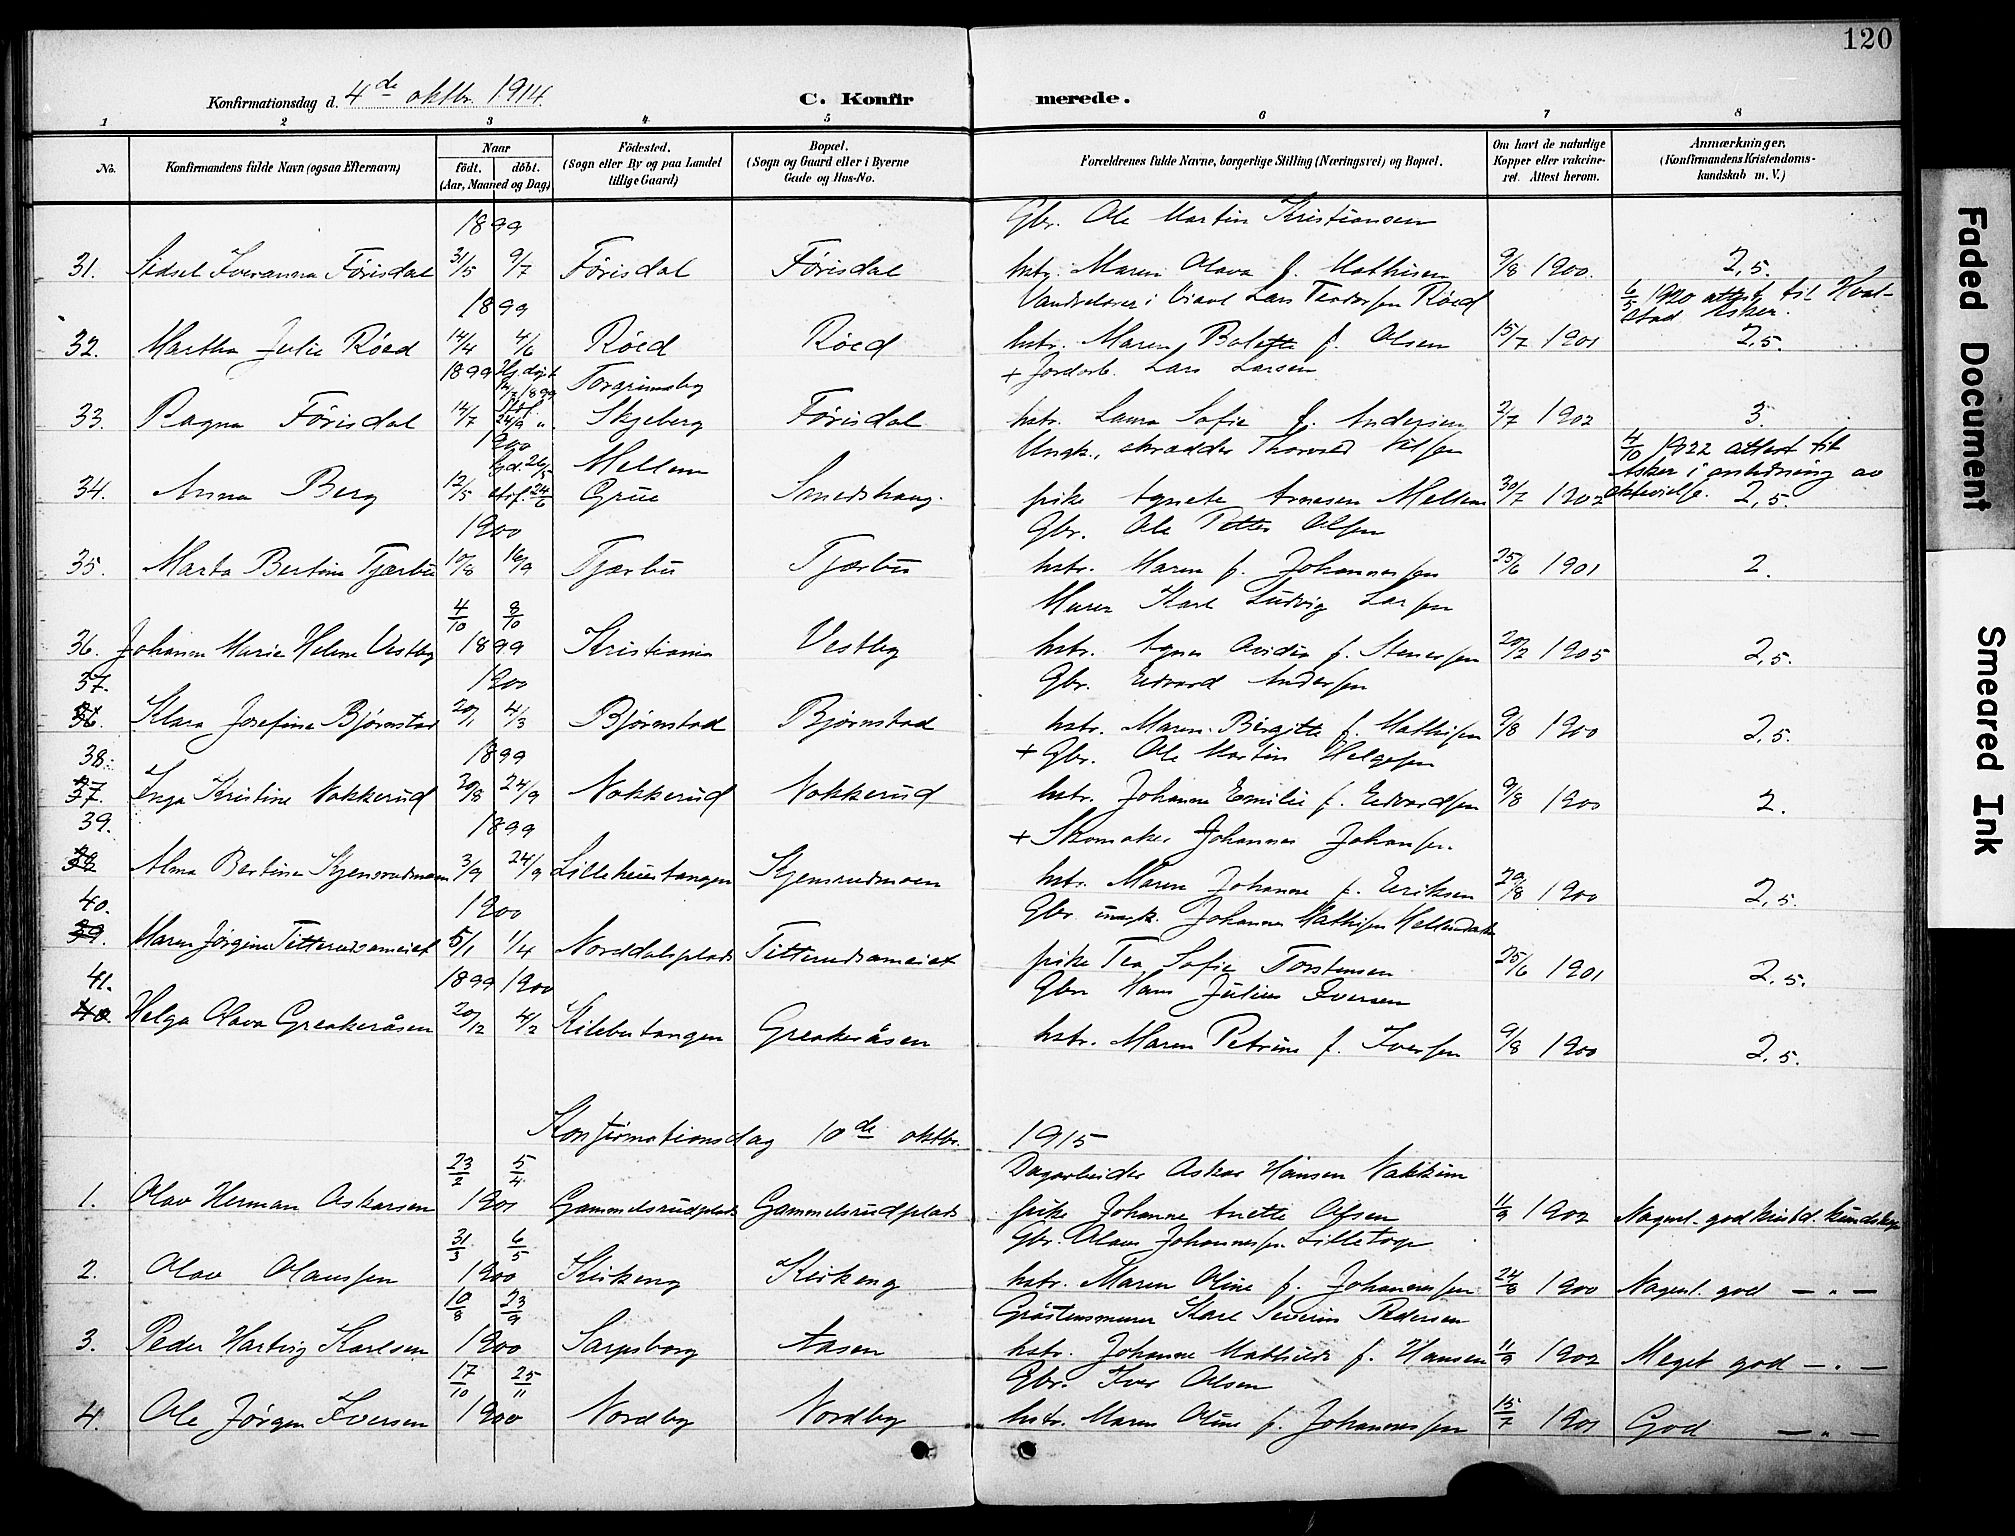 120
Konfirmationsdag d. 4de oktbr. 1914.
C. Konfirmerede.
1 2 3 4 5 6 7 8
No. Konfirmandens fulde Navn (ogsaa Efternavn) Naar født. døbt. (Aar, Maaned og Dag) Fødested. (Sogn eller By og paa Landet tillige Gaard) Bopæl. (Sogn og Gaard eller i Byerne Gade og Hus-No. Forældrenes fulde Navne, borgerlige Stilling (Næringsvei) og Bopæl. Om havt de naturlige Kopper eller vakcineret. Attest herom. Anmærkninger, (Konfirmandens Kristendomskundskab m. V.)
1899 Gbr. Ole Martin Kristiansen
31. Sidsel Iveranna Førisdal 31/5 9/7 Førisdal Førisdal hstr. Maren Olava f. Mathisen 9/8 1900. 2,5.
1899 Lars Teodorsen Røed 6/5 1920 attest til Hvalstad Asker.
32. Martha Julie Røed 14/4 4/6 Røed Røed hstr. Maren Bolette f. Olsen 15/7 1901 2,5.
1899 Hj. døpt 12/7 1899 Torgrimsby + Jordarb. Lars Larsen
33. Ragna Førisdal 12/7 Stf. 24/9 " Skjeberg Førisdal hstr. Laura Sofie f. Andersen 2/7 1902 3.
1900 26/5 Mellem Ungk., skrædder Thorvald 4/10 1922 attest til Asker i anledning av
34. Anna Berg 12/5 stf. 24/6 Grue Smedshaug. pike Agnete Arnesen Mellem 30/7 1902 2,5.
1900 Gbr. Ole Petter Olsen
35. Marta Bertine Tjærbu 10/8 16/9 Tjærbu Tjærbu hstr. Maren f. Johannessen 25/6 1901 2.
4/10 8/10 Murer Karl Ludvig Larsen
36. Johanne Marie Helene Vestby 1899 Kristiania Vestby hstr. Agnes Ovidia f. Stenersen 20/2 1905 2,5.
37. 1900 Gbr. Edvard Andersen
36. Klara Josefine Bjørnstad 20/1 4/3 Bjørnstad Bjørnstad hstr. Maren Birgitte f. Mathisen 9/8 1900 2,5.
38. 1899 + Gbr. Ole Martin Helgesen
37. Inga Kristine Nokkerud 30/8 24/9 Nokkerud Nokkerud hstr. Johanne Emilie f. Edvardsen 9/8 1900 2.
39. 1899 + Skomaker Johannes Johansen.
38. Alma Bertine Kjensrudmoen 3/9 24/9 Lilleheiertangen Kjensrudmoen hstr. Maren Johanne f. Eriksen 20/8 1900 2,5.
40. 1900 Gbr. ungk. Johannes Mathisen
39. Maren Jørgine Titterudsameiet 5/1 1/4 Norddalsplads Titterudsameiet pike Tea Sofie Torstensen 25/6 1901 2,5.
41. 1899 1900 Gbr. Hans Julius Iversen
40. Helga Olava Greakeråsen 20/12 4/2 Kilebutangen Greakeråsen hstr. Maren Petrine f. Iversen 9/8 1900 2,5.
Konfirmationsdag 10de oktbr. 1915
23/2 5/4 Dagarbeider Oskar Hansen Nakkim
1. Olav Herman Oskarsen 1901 Gammelsrudplads Gammelsrudplads pike Johanne Anette Olsen 11/9 1902 Noget god kristd. kundskap
31/3 6/5 Gbr. Olaus Johannessen Lilletorp
2. Olav Olaussen 1900 Kirkeng Kirkeng hstr. Maren Oline f. Johannessen 24/8 1900 Noget god — " —
10/8 23/9 Gråstensmurer Karl Severin Pedersen
3. Peder Hartvig Karlsen 1900 Sarpsborg Aasen hstr. Johanne Mathilde f. Hansen 11/9 1902 Meget god — " —
17/10 25/11 Gbr. Iver Olsen
4. Ole Jørgen Iversen 1900 Nordby Nordby hstr. Maren Oline f. Johannessen 15/7 1901 God — " —
Faded Document
Smeared Ink